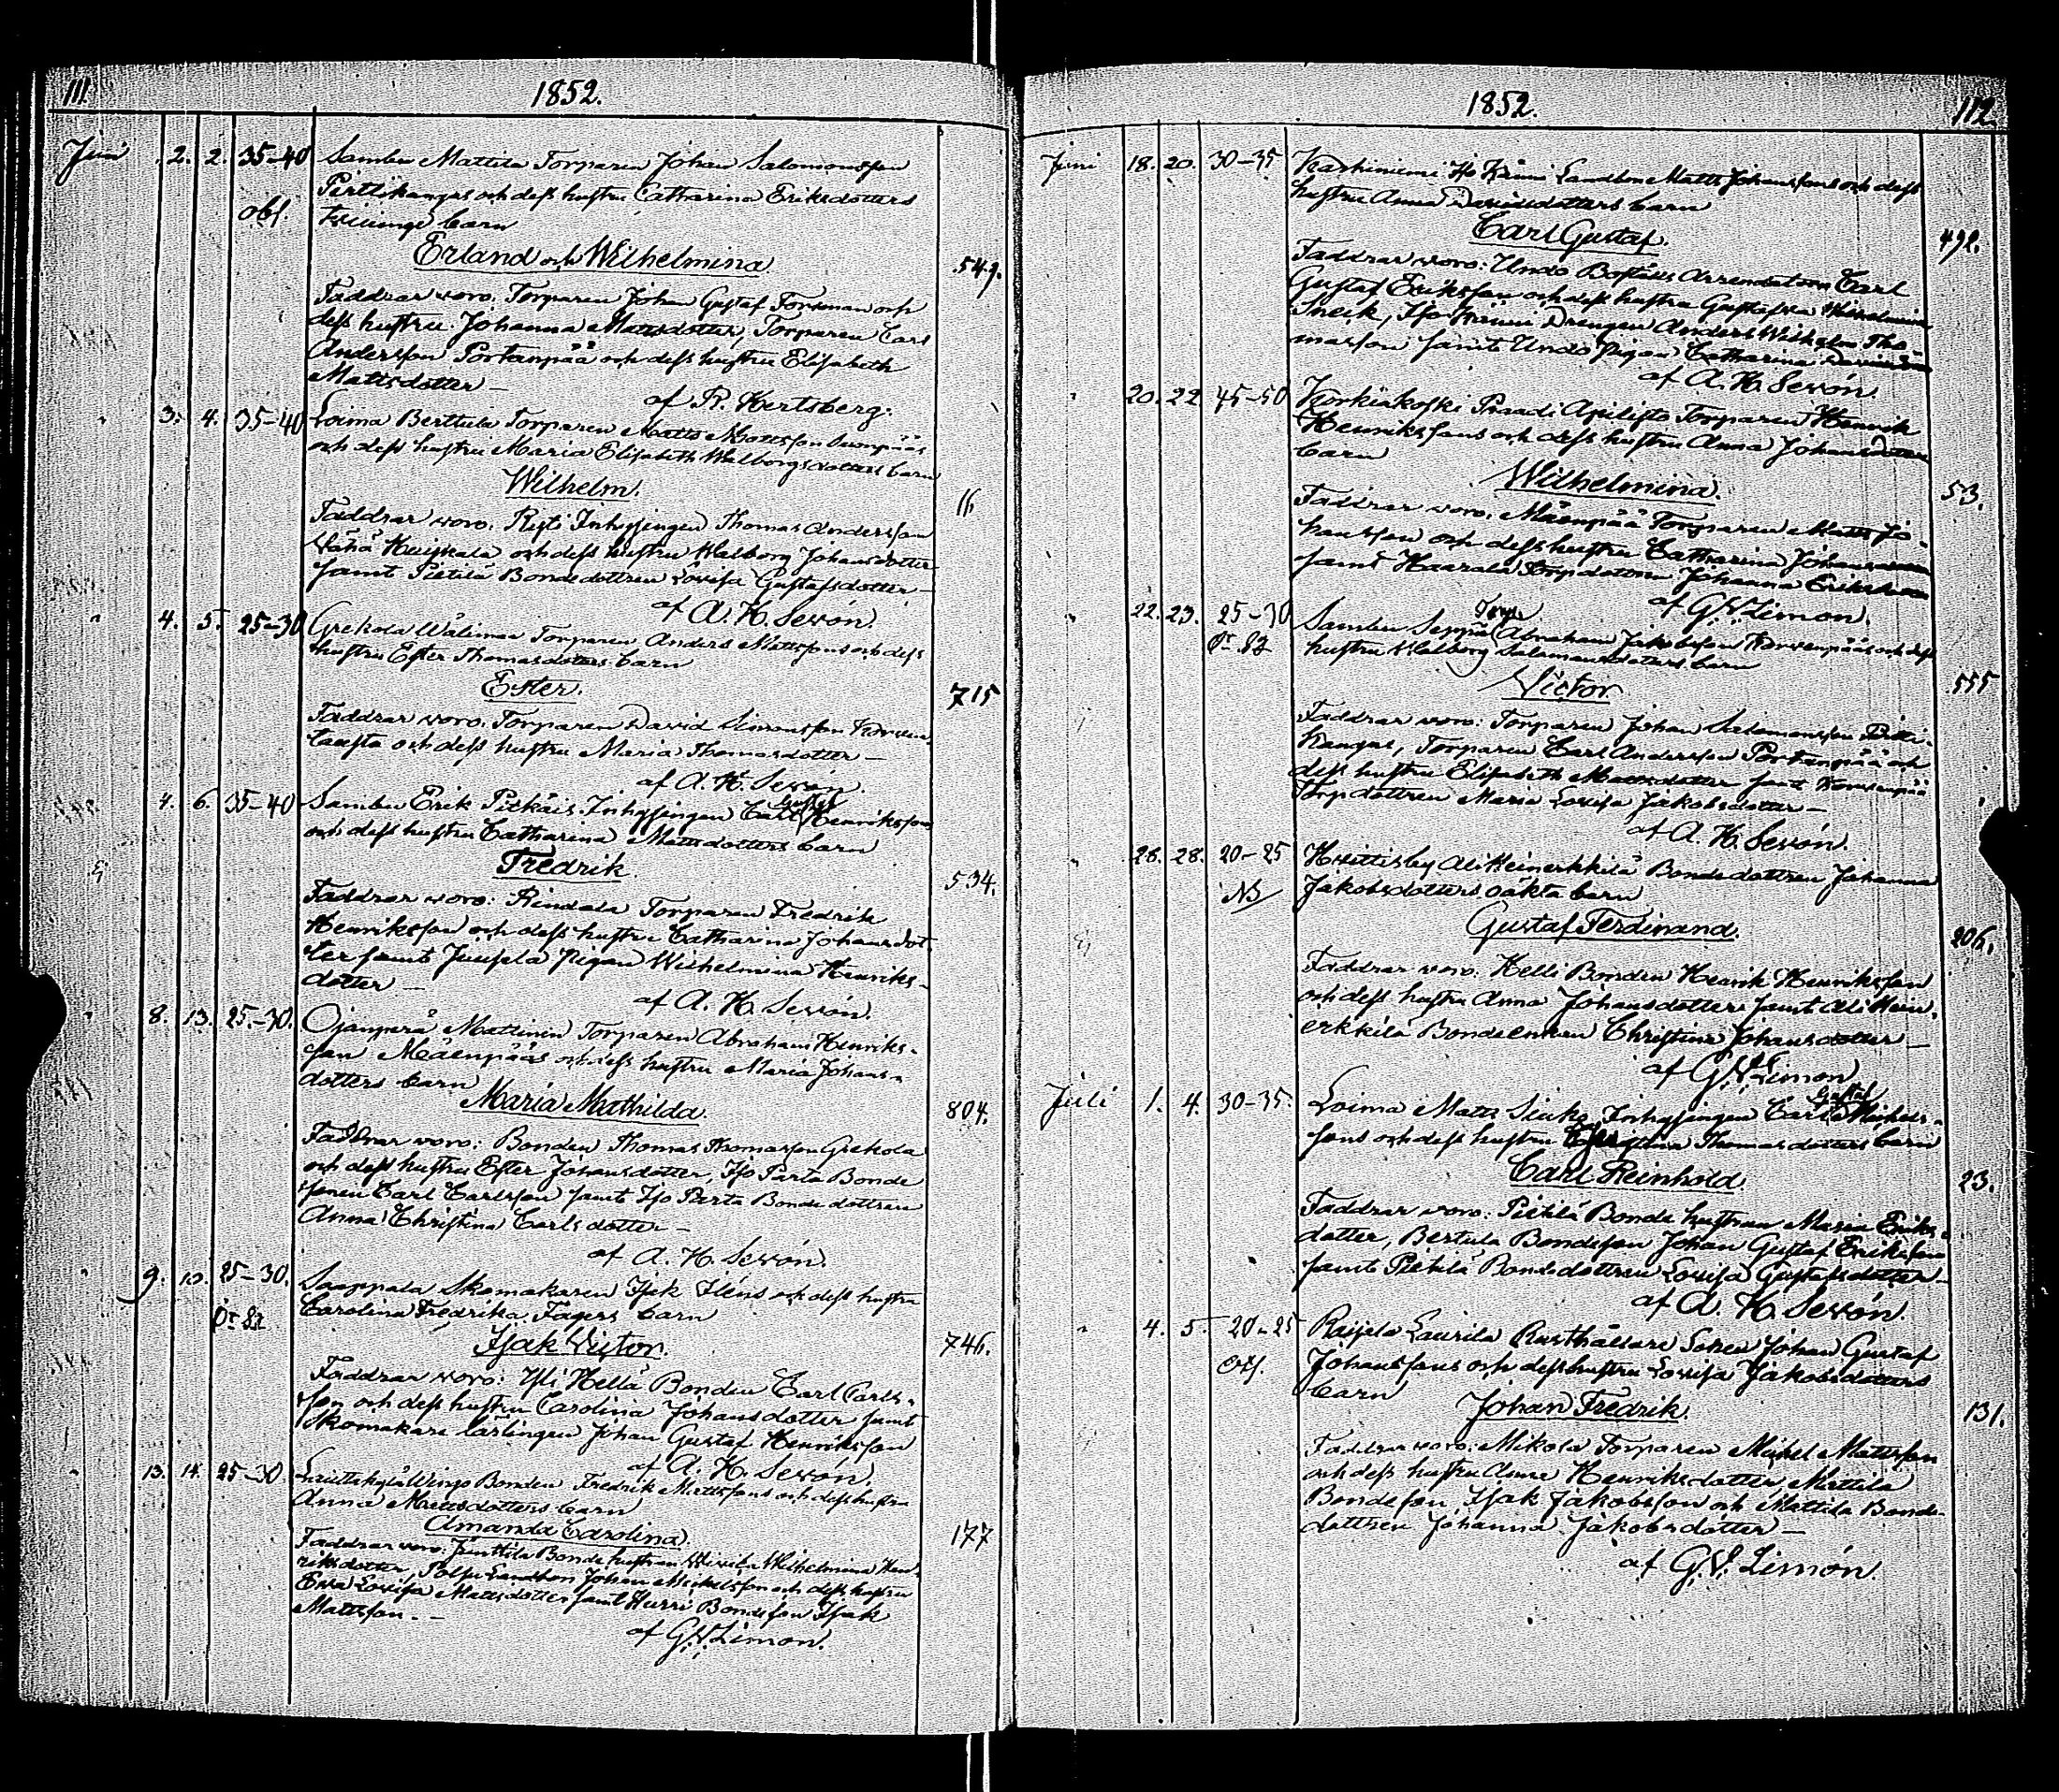 111.
1852.
Juni 2. 2. 35-40 Sambu Mattila Torparen Johan Salomonsson
Pirttikangas och dess hustru Catharina Eriksdotters
obs. Tvillinge barn
Erland och Wilhelmina 549.
Faddrar voro. Torparen Johan Gustaf Forsman och
dess hustru Johanna Mattsdotter, Torparen Carl
Andersson Portanpää och dess hustru Elisabeth
Mattsdotter —
af R. Hertsberg.
" 3. 4. 35-40 Loima Berttula Torparen Matts Mattsson
och dess hustru Maria Elisabeth Walborgsdotters barn
Wilhelm. 16
Faddrar voro. Inhysingen Thomas Andersson
Vähä och dess hustru Walborg Johansdotter
samt Pietilä Bondedottren Lovisa Gustafsdotter —
af A. H. Sevón.
" 4. 5. 25-30 Grekola Wälimaa Torparen Anders Mattssons och dess
hustru Ester Thomasdotters barn
Ester. 715
Faddrar voro. Torparen David Simonsson
och dess hustru Maria Thomasdotter —
af A. H. Sevón.
4. 6. 35-40 Sambu Erik Piekäis Inhysingen Carl Gustaf Henrikssons
och dess hustru Catharina Mattsdotters barn
Fredrik. 534.
Faddrar voro: Rindala Torparen Fredrik
Henriksson och dess hustru Catharina Johansdot-
ter samt Junsela Pigan Wilhelmina Henriks-
dotter —
af A. H. Sevón.
" 8. 13. 25-30. Ojanperä Mattinen Torparen Abraham Henriks-
son Mäenpääs och dess hustru Maria Johans-
dotters barn
Maria Mathilda. 804.
Faddrar voro: Bonden Thomas Thomasson Grekola
och dess hustru Ester Johansdotter, Iso Parta Bonde
sonen Carl Carlsson samt Iso Parta Bondedottren
Anna Christina Carlsdotter —
af A. H. Sevón.
" 9. 10. 25-30. Skomakaren Isak Iléns och dess hustru
Carolina Fredrika Fagers barn
Isak Victor. 746.
Faddrar voro: Yli Hellä Bonden Carl Carls-
son och dess hustru Carolina Johansdotter samt
Skomakare lärlingen Johan Gustaf Henriksson
af A. H. Sevón.
" 13. 14. 25-30. Lauttakylä Wingo Bonden Fredrik Mattssons och dess hustru
Anna Mattsdotters barn
Amanda Carolina. 177
Faddrar voro: Junttila Bonde hustrun Wilhelmina Hen-
riksdotter, Landbon Johan Michelsson och dess hustru
Ewa Lovisa Mattsdotter samt Hurri Bondeson Isak
Mattsson. —
af G. V. Limon.
1852.
112
Juni 18. 20. 30-35 Karhiniemi Iso Kännö Landbon Matts Johanssons och dess
hustru Anna Davidsdotters barn
Carl Gustaf. 492.
Faddrar voro: Undo Boställs Arrendatorn Carl
Gustaf Eriksson och dess hustru Gustafva Wilhelmina
Sneck, Iso Drengen Anders Wilhelm Tho-
masson samt Undo Pigan Catharina
af A. H. Sevón.
" 20. 22 45-50 Korkiakoski Torparen Henrik
Henrikssons och dess hustru Anna Johansdotters
barn
Wilhelmina. 53.
Faddrar voro. Mäenpää Torparen Matts Jo-
hansson och dess hustru Catharina
samt Haarala Torpdottren Johanna
af G. V. Limon.
" 22. 23. 25-30 Sambu Seppä Torp. Abraham Jakobsson Korvenpääs och dess
hustru Walborg Salomonsdotters barn
Victor 555
Faddrar voro: Torparen Johan Salomonsson Pirtti-
kangas, Torparen Carl Andersson Portanpää och
dess hustru Elisabeth Mattsdotter samt Korvenpää
Torpdottren Maria Lovisa Jakobsdotter —
af A. H. Sevón.
" 26. 28. 20-25 Hvittisby Ali Heinerkkilä Bondedottren Johanna
NB Jakobsdotters oäkta barn
Gustaf Ferdinand. 206.
Faddrar voro: Kelli Bonden Henrik Henriksson
och dess hustru Anna Johansdotter samt Ali Hein-
erkkilä Bondeenkan Christina Johansdotter —
af G. V. Limon
Juli 1. 4. 30-35. Loima Matts Siuko Inhysingen Carl Gustaf Michels-
sons och dess hustru Christina Thomasdotters barn
Carl Reinhold 23.
Faddrar voro: Pietilä Bonde hustrun Maria Eriks-
dotter, Bertula Bondeson Johan Gustaf Eriksson
samt Pietilä Bondedottren Lovisa Gustafsdotter —
af A. H. Sevón.
" 4. 5. 20-25 Raijala Laurila Rusthållare Sonen Johan Gustaf
Johanssons och dess hustru Lovisa Jakobsdotters
barn
Johan Fredrik. 131.
Faddrar voro: Mikola Torparen Michel Mattsson
och dess hustru Anna Henriksdotter, Mattila
Bondeson Isak Jakobsson och Mattila Bonde-
dottren Johanna Jakobsdotter —
af G. V. Limón.